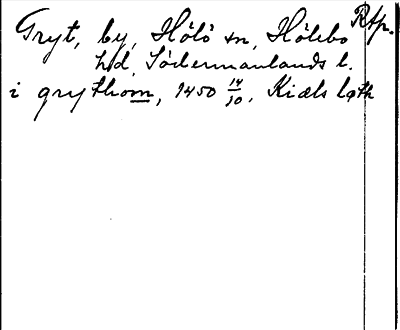 Rtp.
Gryt, by, Hölö sn, Hölebo
hd, Södermanlands l.
i grythom, 1450 14/10. Kiæls lqth